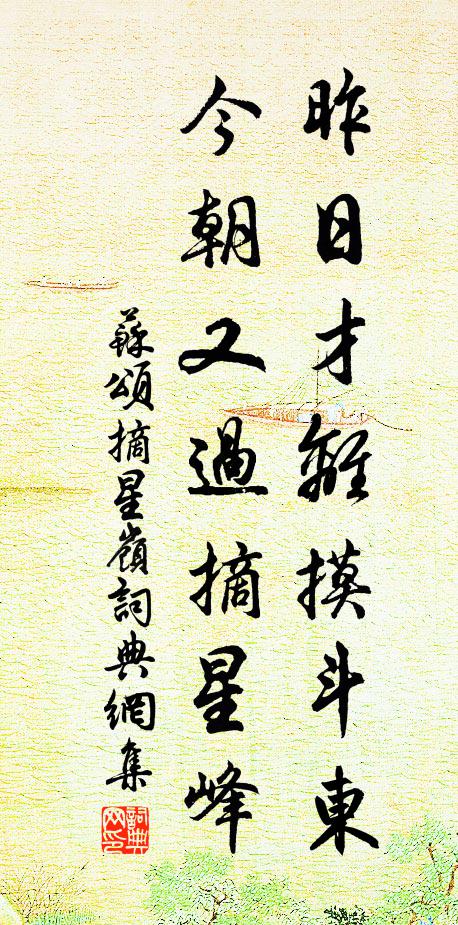 昨日才離摸斗東
今朝又過摘星峰
蘇頌摘星嶺詞典網集
詞典网印